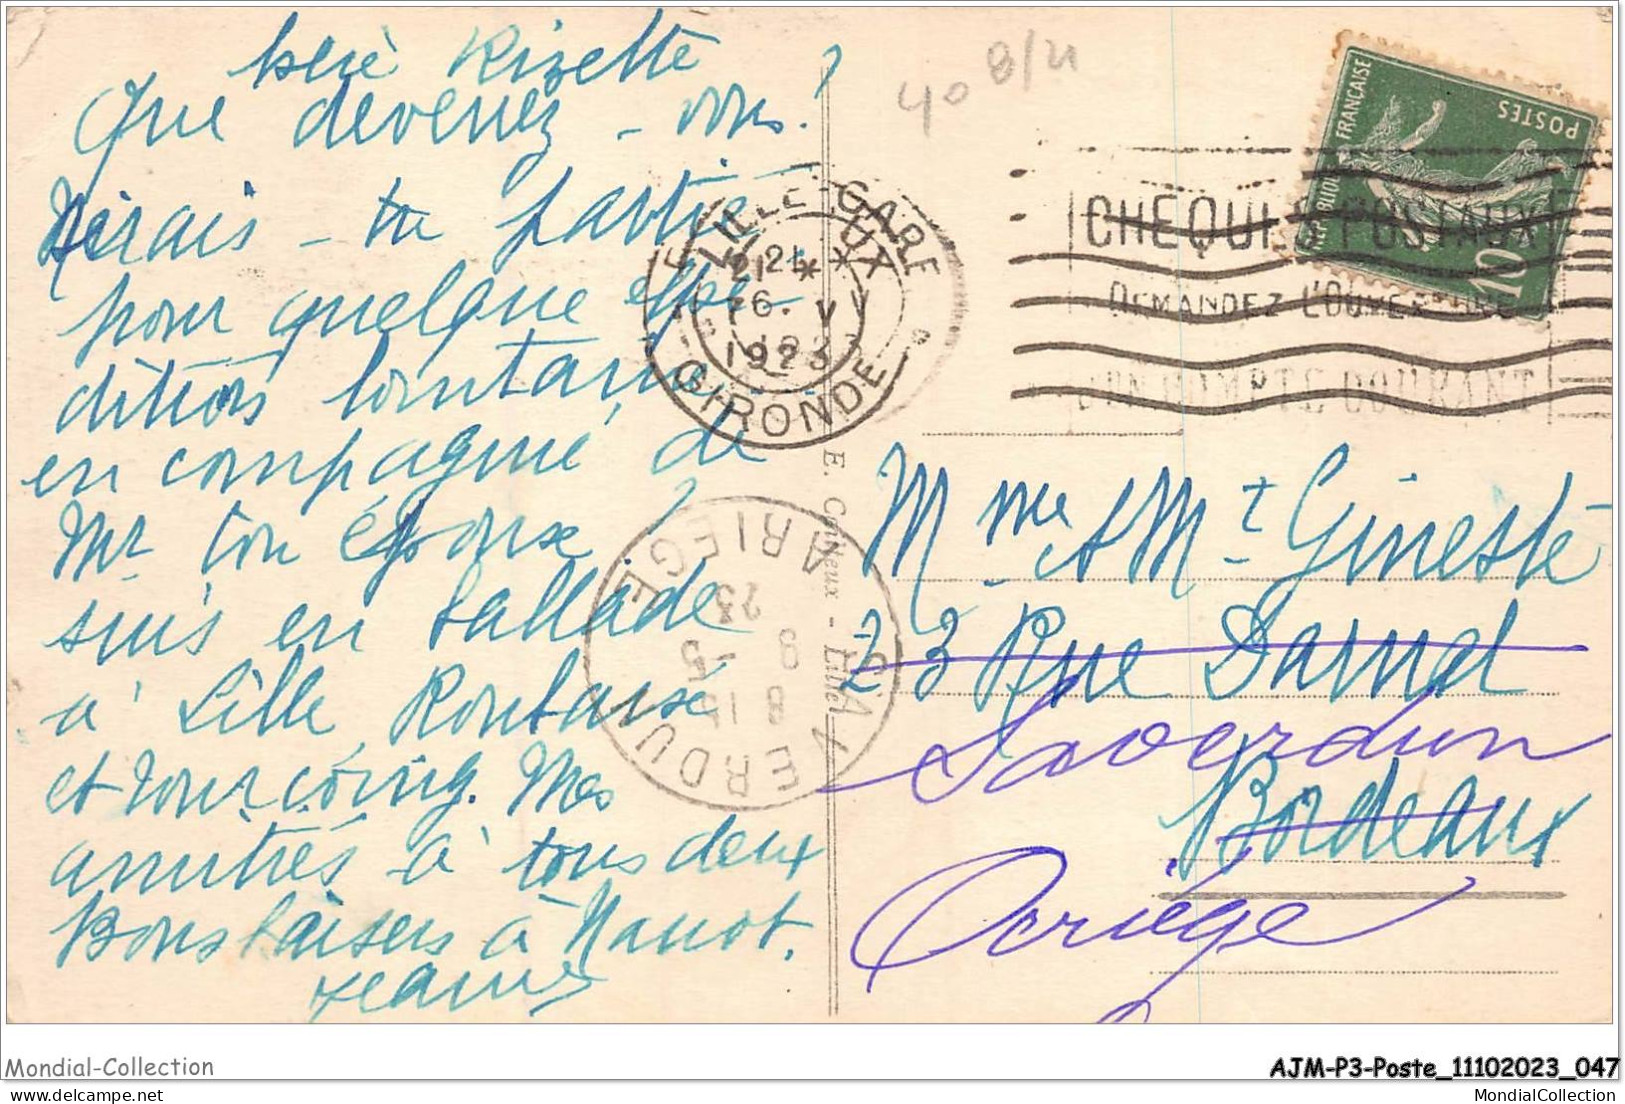 Rizette
Que devenez-vous ?
Serais-tu partie
pour quelque expé-
dition lointaine
en compagnie de
Mr ton époux ?
suis en ballade
à Lille Roubaix
et Tourcoing. Mes
amitiés à tous deux
Bons baisers à Nanot.
Jeanne
40 8/21
LILLE-GARE
21
26. V
1923
GIRONDE
CHEQUES POSTAUX
DEMANDEZ L'OUVERTURE
D'UN COMPTE COURANT
RÉPUBLIQUE FRANÇAISE
POSTES
10c
E. Cailteux - Lille
SAVERDUN
8 15
9 -5
23
ARIEGE
Mme & Mr Gineste
23 Rue Darnal
Saverdun
Bordeaux
Ariège
Mondial-Collection
AJM-P3-Poste_11102023_047
MondialCollection